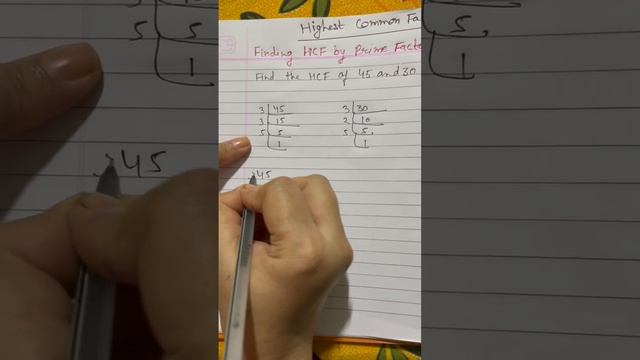 Highest Common Fa
Finding HCF by Prime Facto
Find the HCF of 45 and 30
3 45 3 30
3 15 2 10
5 5 5 5
1 1
45